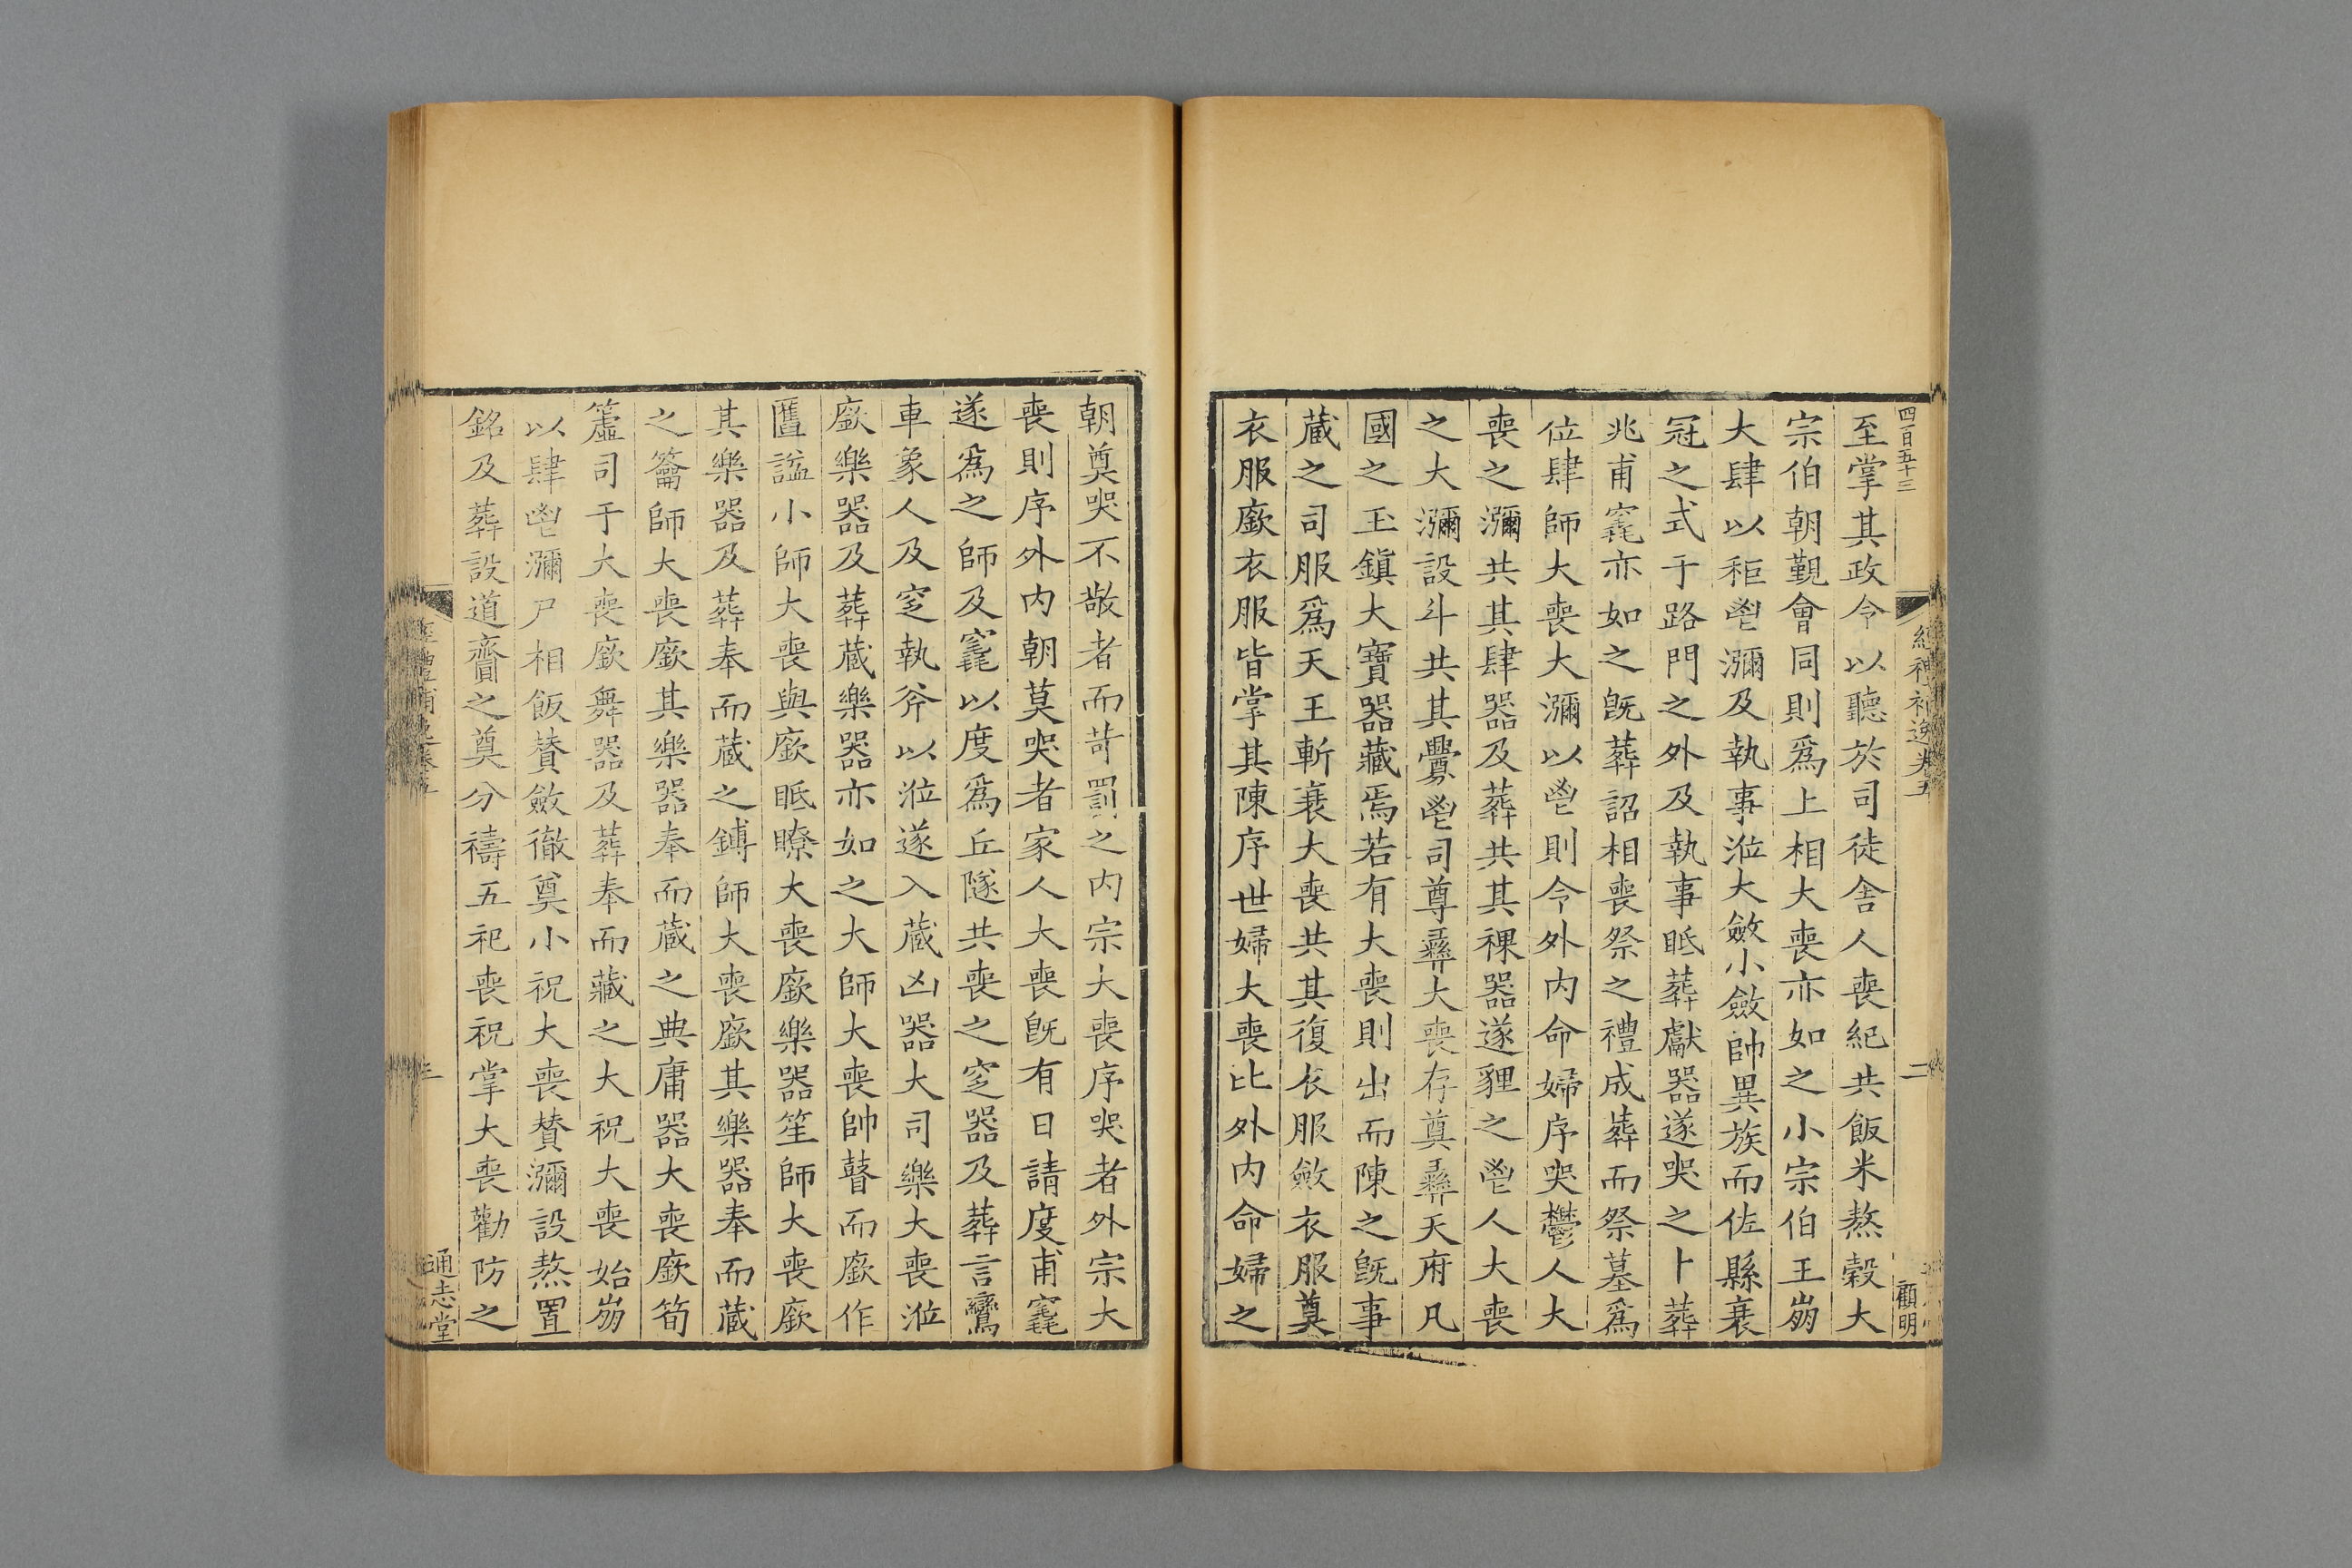 四百五十三
二
顧明
至掌其政令以聽於司徒舍人喪紀共飯米熬穀大
宗伯朝覲會同則爲上相大喪亦如之小宗伯王崩
大肆以秬鬯渳及執事涖大斂小斂帥異族而佐縣衰
冠之式于路門之外及執事眡葬獻器遂哭之卜葬
兆甫竁亦如之旣葬詔相喪祭之禮成葬而祭墓爲
位肆師大喪大渳以鬯則令外内命婦序哭鬱人大
喪之渳共其肆器及葬共其祼器遂貍之鬯人大喪
之大渳設斗共其釁鬯司尊彝大喪存奠彝天府凡
國之玉鎭大寶器藏焉若有大喪則出而陳之旣事
藏之司服爲天王斬衰大喪共其復衣服斂衣服奠
衣服廞衣服皆掌其陳序世婦大喪比外内命婦之
朝莫哭不敬者而苛罰之内宗大喪序哭者外宗大
喪則序外内朝莫哭者冢人大喪旣有日請度甫竁
遂爲之師及竁以度爲丘隧共喪之窆器及葬言鸞
車象人及窆執斧以涖遂入藏凶器大司樂大喪涖
廞樂器及葬藏樂器亦如之大師大喪帥瞽而廞作
匶諡小師大喪與廞眡瞭大喪廞樂器笙師大喪廞
其樂器及葬奉而藏之鎛師大喪廞其樂器奉而藏
之籥師大喪廞其樂器奉而藏之典庸器大喪廞筍
簴司干大喪廞舞器及葬奉而藏之大祝大喪始崩
以肆鬯渳尸相飯贊斂徹奠小祝大喪贊渳設熬置
銘及葬設道齎之奠分禱五祀喪祝掌大喪勸防之
三
通志堂